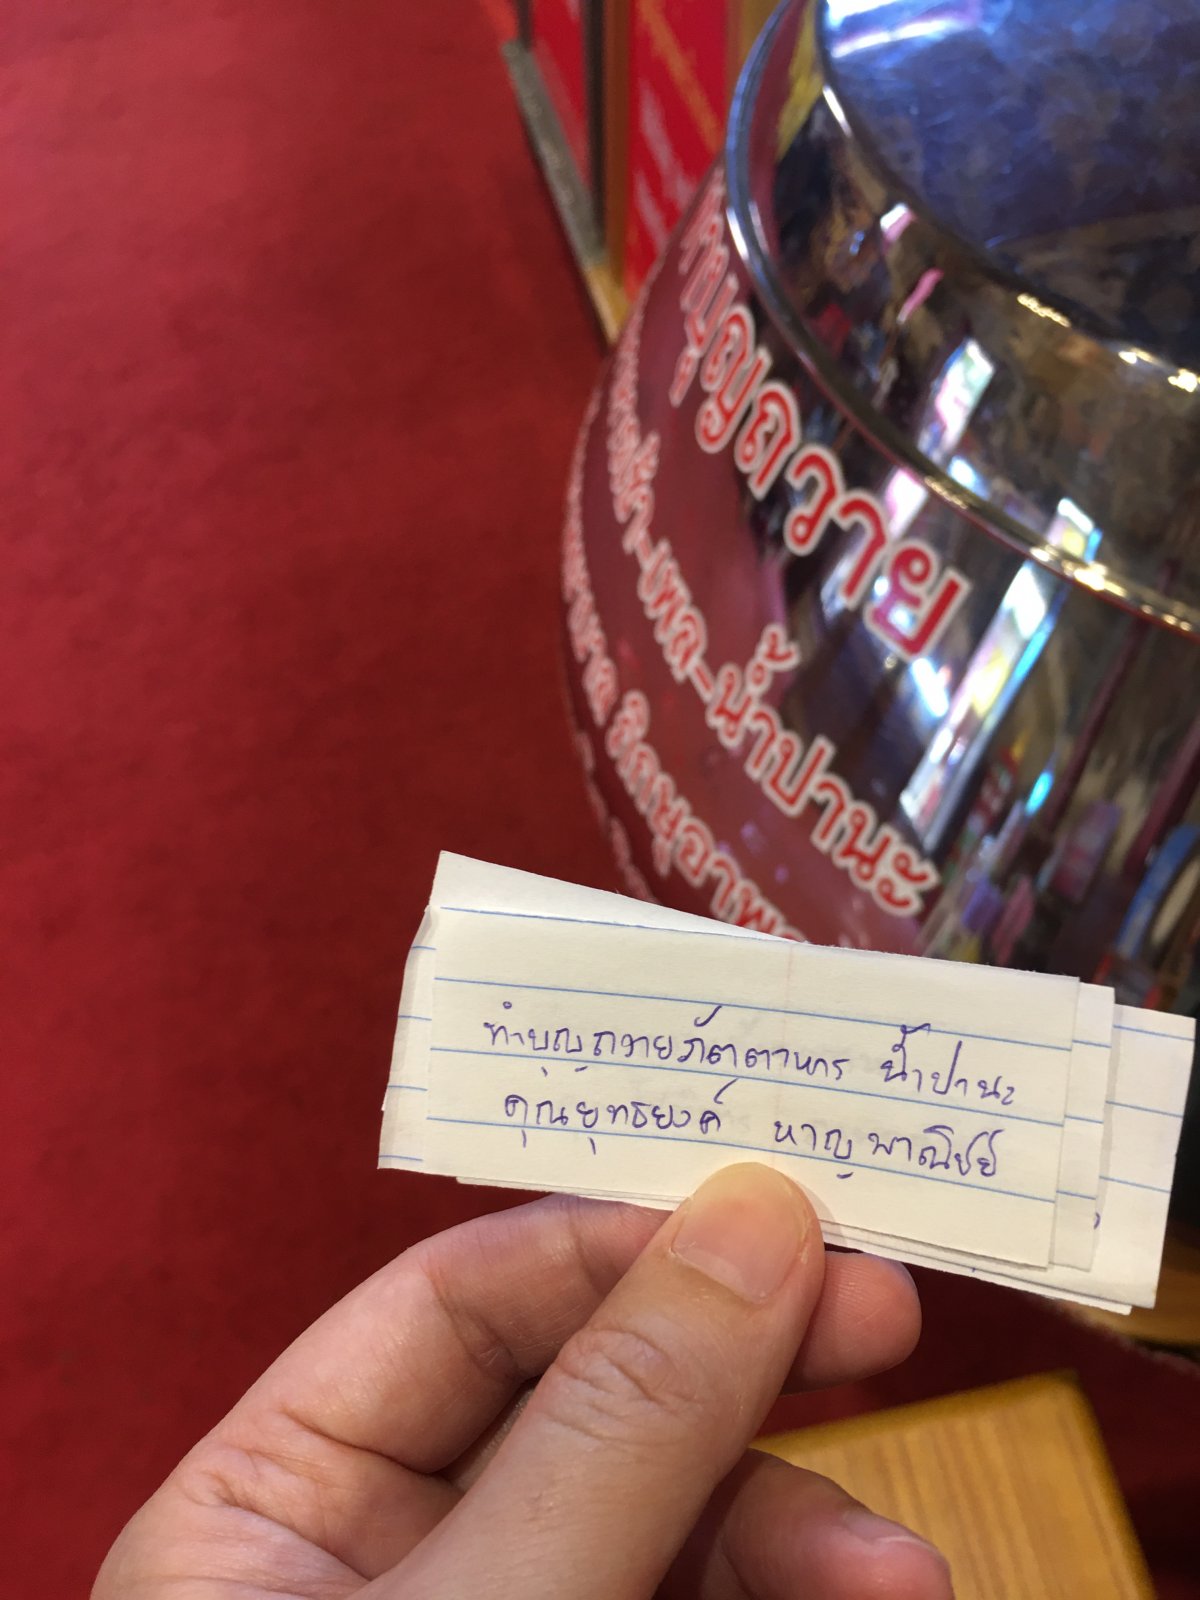 ญถวาย
เช้า-เพล-น้ำปานะ
ภิกษุอาพาธ
ทำบุญถวายภัตตาหาร น้ำปานะ
คุณยุทธยงค์ หาญพาณิชย์